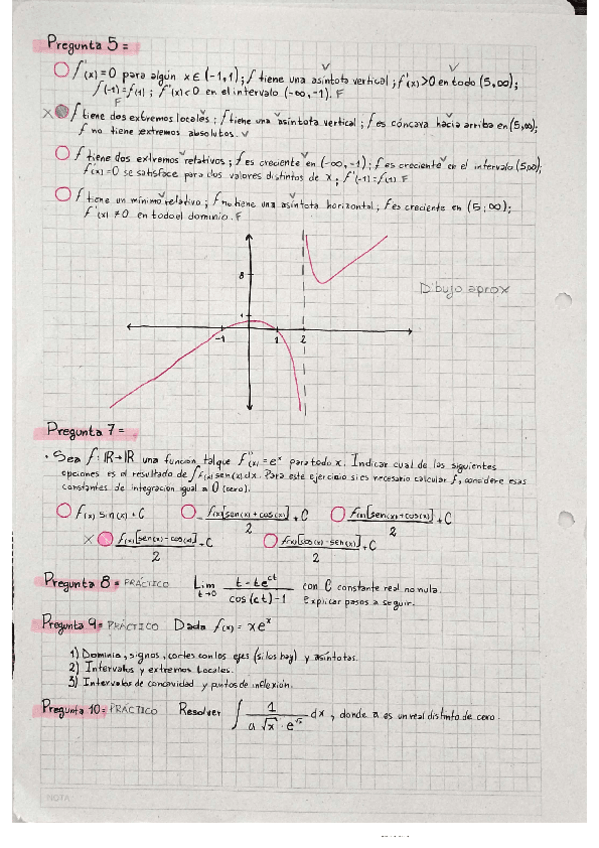 Pregunta 5 =
f'(x)=0 para algún x∈(-1,1); f tiene una asíntota vertical; f'(x)>0 en todo (5,∞);
f(-1)=f(1); f''(x)<0 en el intervalo (-∞,-1). F
F
X f tiene dos extremos locales; f tiene una asíntota vertical; f es cóncava hacia arriba en (5,∞);
f no tiene extremos absolutos. V
f tiene dos extremos relativos; f es creciente en (-∞,-1); f es creciente en el intervalo (5,∞);
f'(x)=0 se satisface para dos valores distintos de x; f'(-1)=f(1). F
f tiene un mínimo relativo; f no tiene una asíntota horizontal; f es creciente en (5,∞);
f'(x) ≠0 en todo el dominio. F
8
Dibujo aprox
1
-1 1 2
Pregunta 7=
• Sea f: ℝ→ℝ una función tal que f''(x)=eˣ para todo x. Indicar cual de las siguientes
opciones es el resultado de ∫f(x) sen(x) dx. Para este ejercicio si es necesario calcular f, considere esas
constantes de integración igual a 0 (cero).
f(x) sin(x) + C
f(x)[sen(x)+cos(x)]/2 + C
f(x)[sen(x)+cos(x)]/2 + C
X f(x)[sen(x)-cos(x)]/2 + C
f(x)[cos(x)-sen(x)]/2 + C
Pregunta 8= PRÁCTICO Lim t→0 (t-te^(ct))/(cos(ct)-1) con C constante real no nula.
explicar pasos a seguir.
Pregunta 9= PRÁCTICO Dada f(x) = xeˣ
1) Dominio, signos, cortes con los ejes (si los hay) y asíntotas.
2) Intervalos y extremos Locales.
3) Intervalos de concavidad y puntos de inflexión.
Pregunta 10= PRÁCTICO Resolver ∫ 1/(a√x · e^√x) dx, donde a es un real distinto de cero.
NOTA